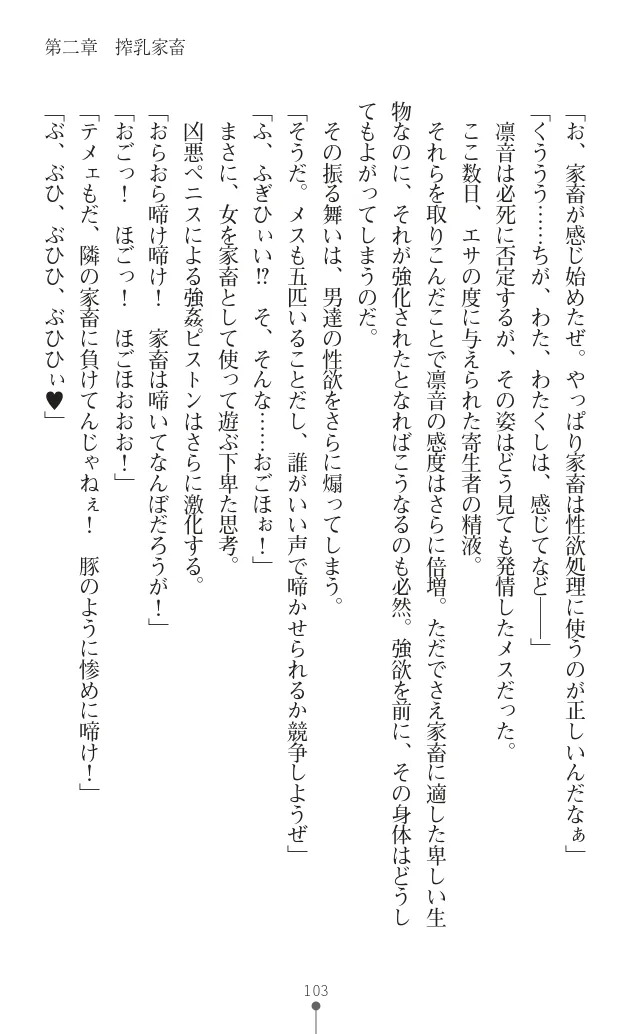 第二章　搾乳家畜
「お、家畜が感じ始めたぜ。やっぱり家畜は性欲処理に使うのが正しいんだなぁ」
「くううう……ちが、わた、わたくしは、感じてなど――」
　凛音は必死に否定するが、その姿はどう見ても発情したメスだった。
　ここ数日、エサの度に与えられた寄生者の精液。
　それらを取りこんだことで凛音の感度はさらに倍増。ただでさえ家畜に適した卑しい生
物なのに、それが強化されたとなればこうなるのも必然。強欲を前に、その身体はどうし
てもよがってしまうのだ。
　その振る舞いは、男達の性欲をさらに煽ってしまう。
「そうだ。メスも五匹いることだし、誰がいい声で啼かせられるか競争しようぜ」
「ふ、ふぎひぃい!?　そ、そんな……おごほぉ！」
　まさに、女を家畜として使って遊ぶ下卑た思考。
　凶悪ペニスによる強姦ピストンはさらに激化する。
「おらおら啼け啼け！　家畜は啼いてなんぼだろうが！」
「おごっ！　ほごっ！　ほごほおおお！」
「テメェもだ、隣の家畜に負けてんじゃねぇ！　豚のように惨めに啼け！」
「ぶ、ぶひ、ぶひひ、ぶひひぃ♥」
103